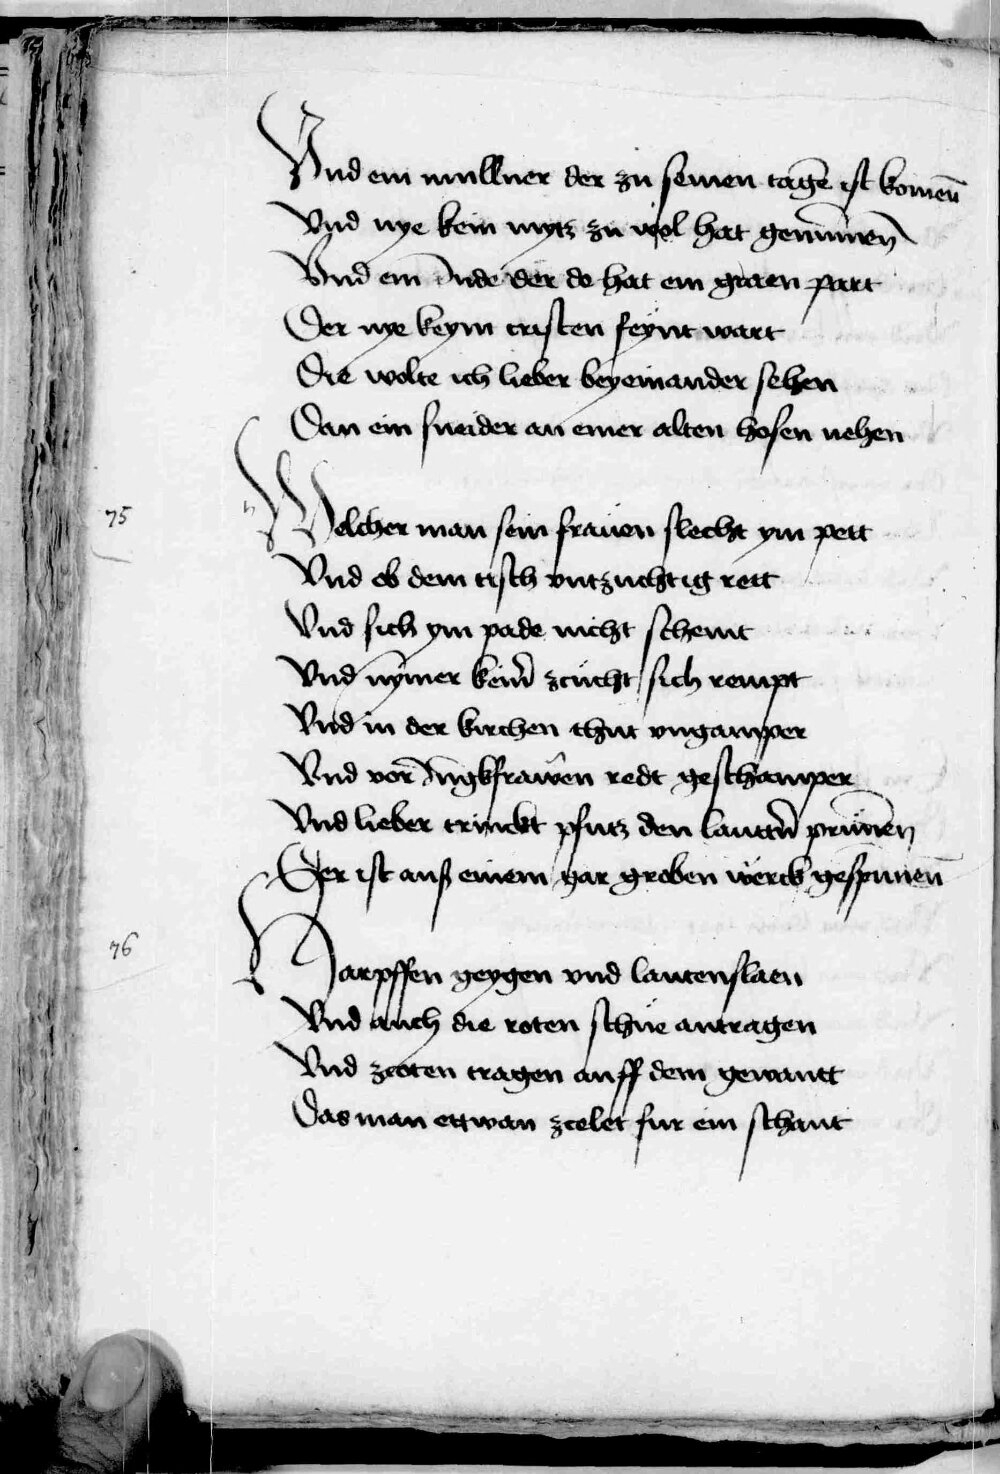 Vnd ein mullner der zu seinen tagē ist komen̄
Vnd nye kein mytz zu vol hat genūmen
Vnd ein Jude der do hat ein graen part
Der nye keym cristen feynt wart
Die wolte ich lieber beyeinander sehen
Dan ein sneider an einer alten hosen nehen
75
Welcher man sein frauen slecht ym pett
Vnd ob dem tisch vntzuchtig rett
Vnd sich ym pade nicht schemt
Vnd nymer keiner zcucht sich rempt
Vnd in der kirchen thut vngamper
Vnd vor Jungkfrawen redt geschamper
Vnd lieber trinckt pfutz den lauttern prūnen
Der ist auß einem gar groben werck gespunnen̄
76
Harpffen geygen vnd lautenslaen
Vnd auch die roten schue antragen
Vnd zcoten tragen auff dem gewantt
Das man ettwan zcelet fur ein schant